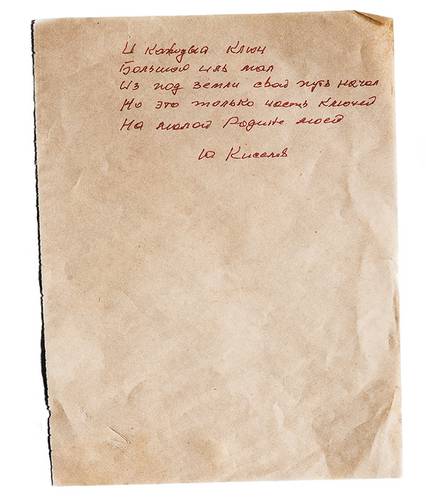 И каждый ключ
Большой иль мал
Из под земли свой путь начал
Но это только часть ключей
На малой Родине моей
Ю Киселев